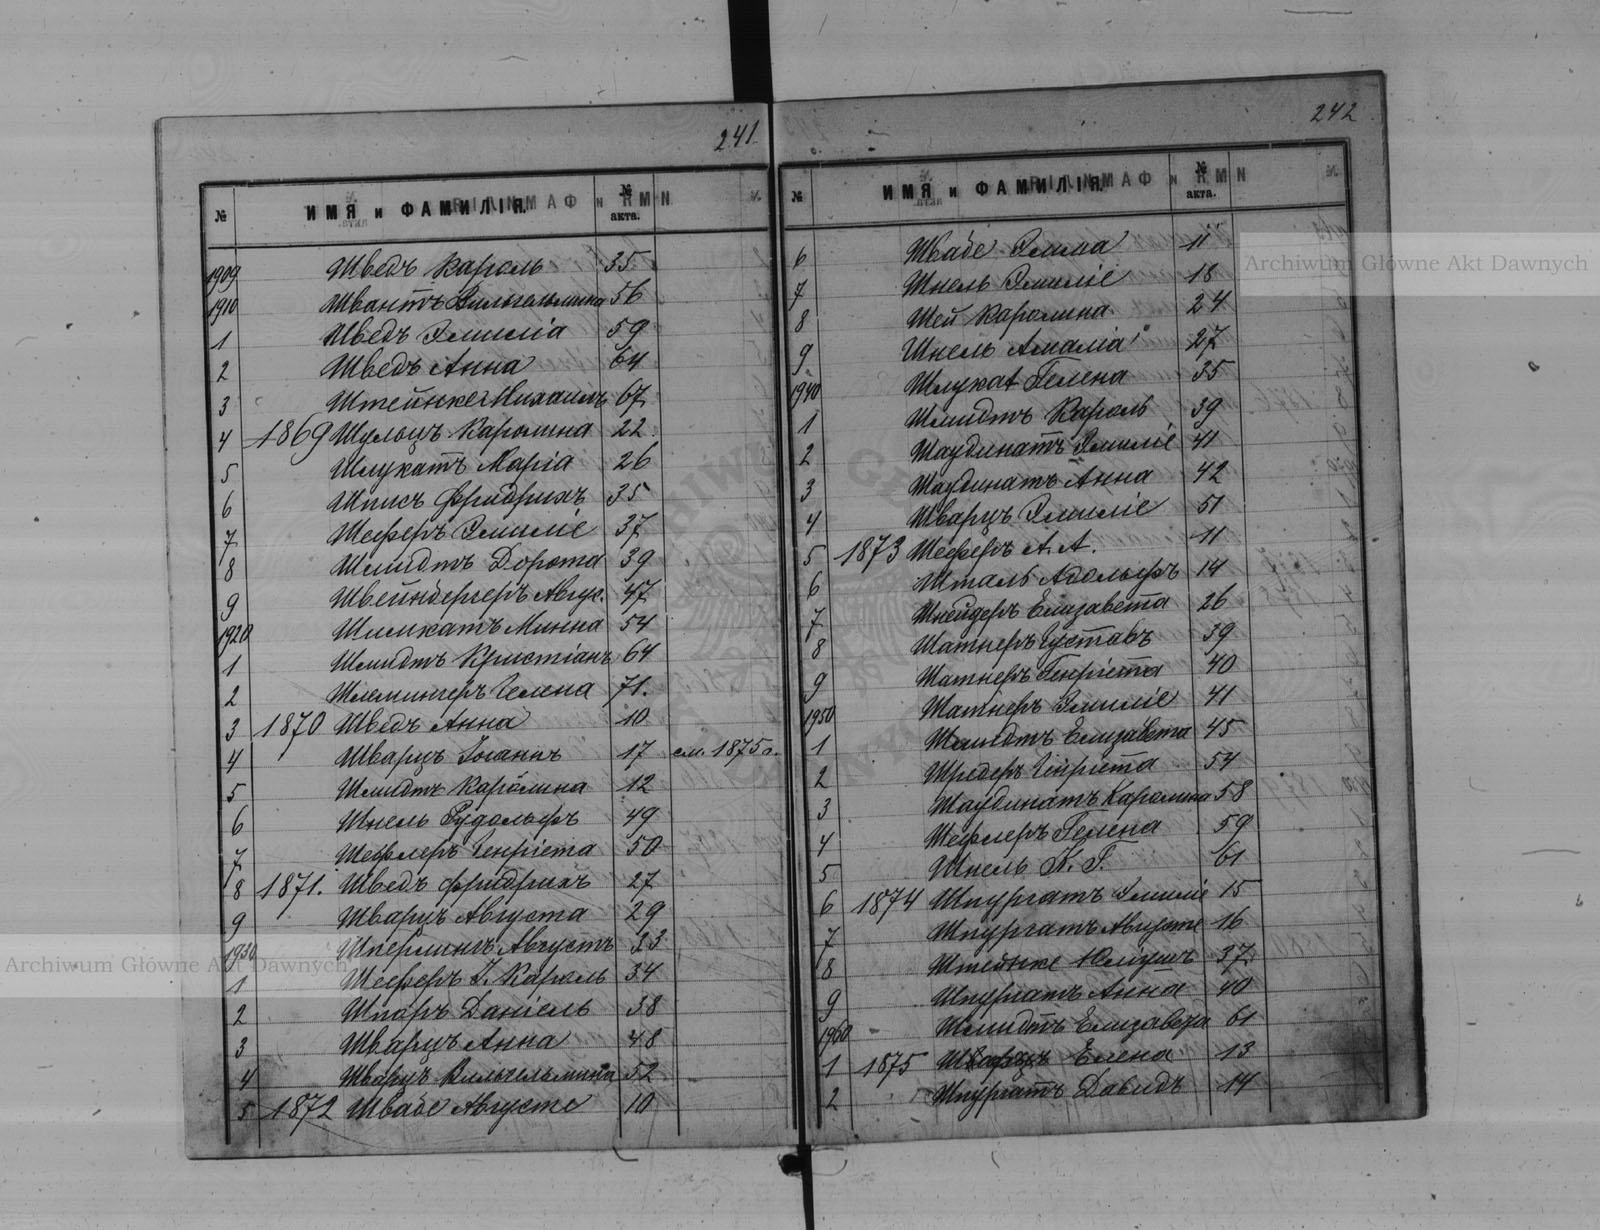 241.
№ ИМЯ и ФАМИЛІЯ. № акта.
1909 Шведъ Кароль 35
1910 Швантъ Вильгельмина 56
1 Шведъ Эмилія 59
2 Шведъ Анна 64
3 Штейнке Михаилъ 67
4 1869 Шульцъ Каролина 22
5 Шлукатъ Марія 26
6 Шписъ Фридрихъ 35
7 Шеферъ Эмиліе 37
8 Шмидтъ Дорота 39
9 Швейнбергеръ Авгус. 47
1920 Шимкатъ Минна 54
1 Шмидтъ Кристіанъ 64
2 Шлемингеръ Гелена 71.
3 1870 Шведъ Анна 10
4 Шварцъ Іоганъ 17 см. 1875 г.
5 Шмидтъ Каролина 12
6 Шнель Рудольфъ 49
7 Шефлеръ Генріета 50
8 1871. Шведъ Фридрихъ 27
9 Шварцъ Августа 29
1930 Шперлингъ Августъ 33
1 Шеферъ І. Кароль 34
2 Шпаръ Даніель 38
3 Шварцъ Анна 48
4 Шварцъ Вильгельмина 52
5 1872 Швабе Августе 10
242
№ ИМЯ и ФАМИЛІЯ. № акта.
6 Швабе Эмма 11
7 Шнель Эмиліе 18
8 Шей Каролина 24
9 Шнель Амалія 27
1940 Шлукат Гелена 35
1 Шмидтъ Кароль 39
2 Шаудинатъ Эмиліе 41
3 Шаудинатъ Анна 42
4 Шварцъ Эмиліе 51
5 1873 Шеферъ А. А. 11
6 Шталь Адольфъ 14
7 Шнейдеръ Елизавета 26
8 Шатнеръ Густавъ 39
9 Шатнеръ Генріета 40
1950 Шатнеръ Эмиліе 41
1 Шмидтъ Елизавета 45
2 Шредеръ Генріета 54
3 Шаудинатъ Каролина 58
4 Шефлеръ Гелена 59
5 Шнель К. Г. 61
6 1874 Шпургатъ Эмиліе 15
7 Шпургатъ Августе 16
8 Штейнке Юліушъ 37
9 Шпургатъ Анна 40
1960 Шмидтъ Елизавета 61
1 1875 Шварцъ Елена 13
2 Шпургатъ Давидъ 14
Archiwum Główne Akt Dawnych
Archiwum Główne Akt Dawnych